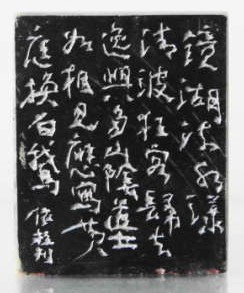 鏡湖流水漾
清波狂客歸舟
逸興多山陰道士
如相見應寫黃
庭換白鵝